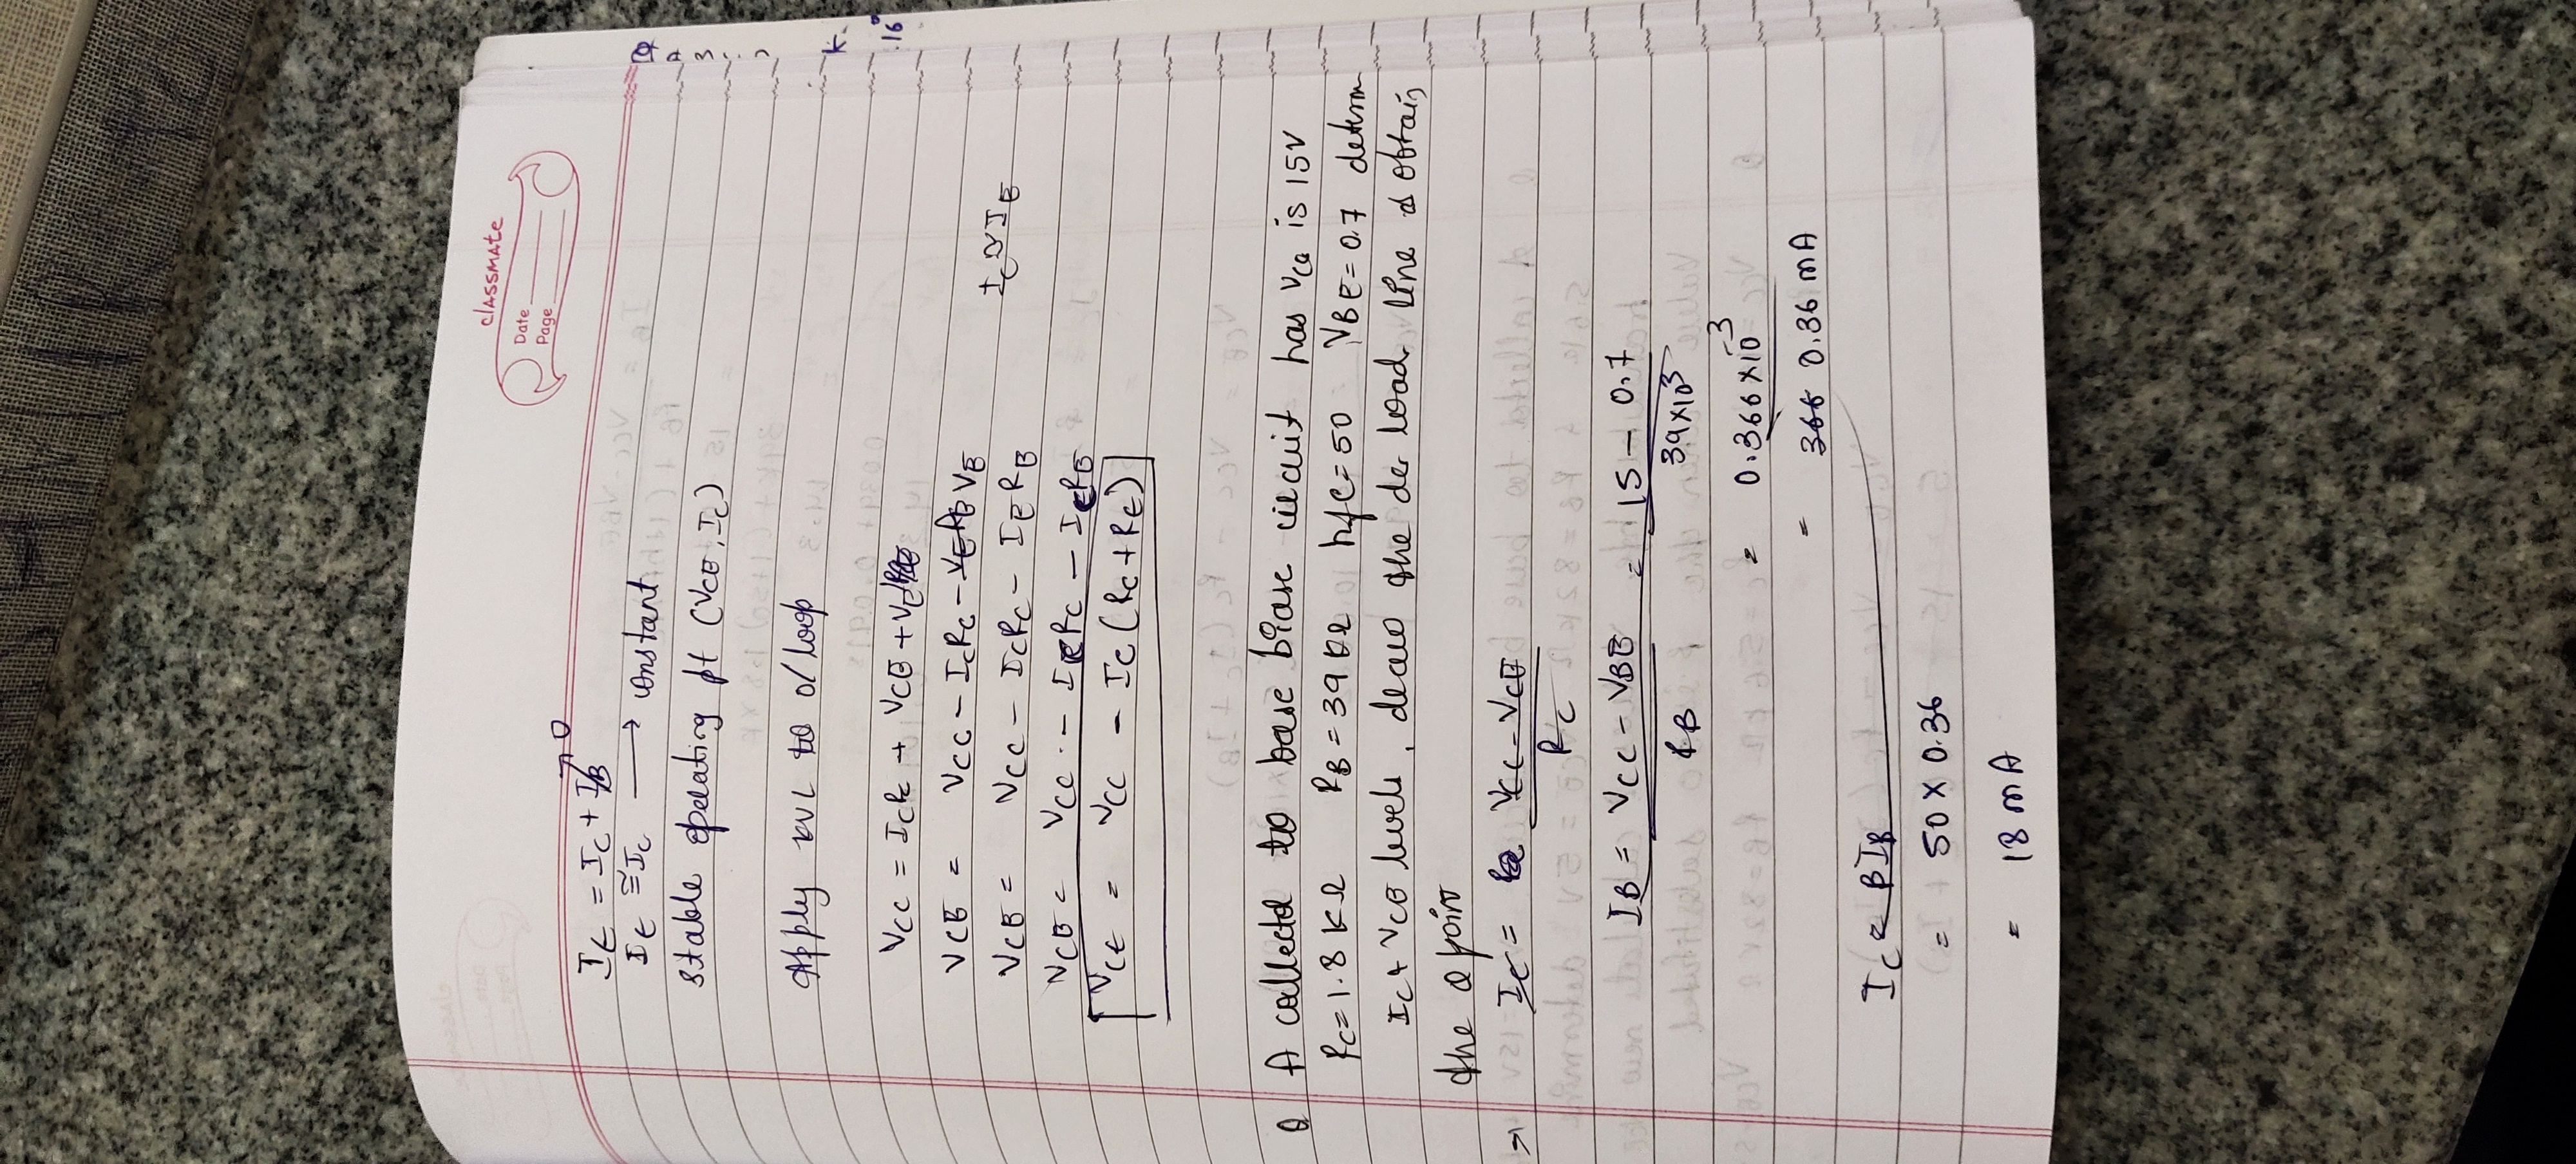 classmate
Date
Page
IE = IC + IB → 0
IE ≅ IC → constant
stable operating pt (VCE, IC)
Apply KVL to o/ loop
VCC = ICRC + VCE + VE
VCE = VCC - ICRC - VERE VE
VCE = VCC - ICRC - IERE
IC ≅ IE
VCE = VCC - ICRC - ICRE
VCE = VCC - IC (RC + RE)
Q A collector to base biase circuit has VCC is 15V
RC = 1.8 KΩ RB = 39 KΩ hfe = 50 VBE = 0.7 determ
IC + VCE levels, draw the dc load line & obtain
the Q point
→ IC = VCC - VCE
RC
IB = VCC - VBE = 15 - 0.7
RB 39×10³
= 0.366 × 10⁻³
= 366 0.36 mA
IC = βIB
= 50 × 0.36
= 18 mA